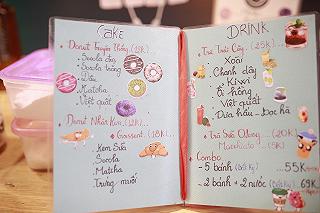 CAKE
Donut Truyền Thống.. (18K)...
- Socola đen
- Socola trắng
- Dâu
- Matcha
- Việt quất
Donut Nhân Kem.. (22K)...
Croissant. (18K)...
- Kem Sữa
- Socola
- Matcha
- Trứng muối
DRINK
Trà Trái Cây.. (25K)...
- Xoài
- Chanh dây
- Kiwi
- Ổi hồng
- Việt quất
- Dưa hấu - Bạc hà
Trà Sữa Olong.. (20K)
Macchiato
Combo
- 5 bánh (Bất Kỳ) 55K
- 2 bánh + 2 nước (Bất Kỳ) 69K